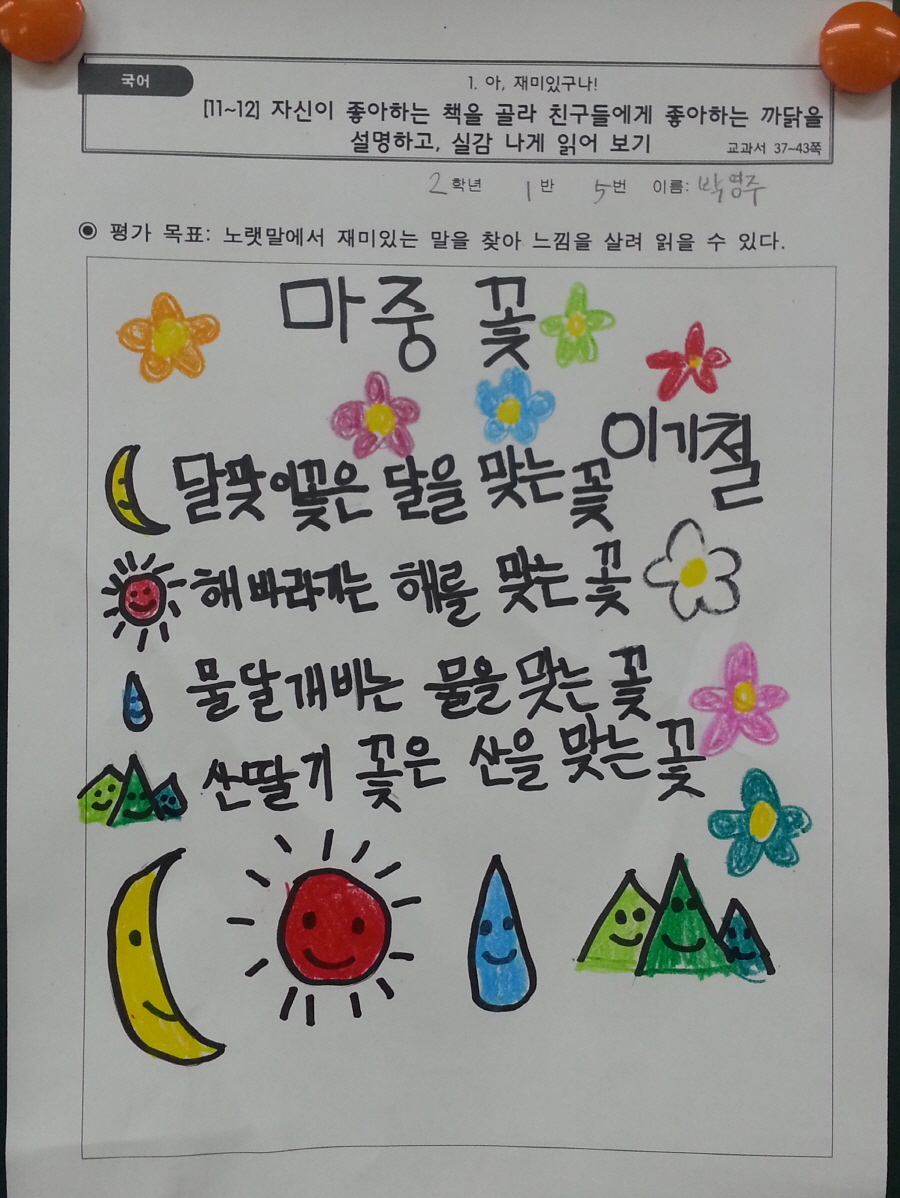 국어
1. 아, 재미있구나!
[11~12] 자신이 좋아하는 책을 골라 친구들에게 좋아하는 까닭을
설명하고, 실감 나게 읽어 보기
교과서 37~43쪽
2학년 1반 5번 이름: 박영주
◉ 평가 목표: 노랫말에서 재미있는 말을 찾아 느낌을 살려 읽을 수 있다.
마중 꽃
이기철
달맞이꽃은 달을 맞는 꽃
해바라기는 해를 맞는 꽃
물달개비는 물을 맞는 꽃
산딸기 꽃은 산을 맞는 꽃